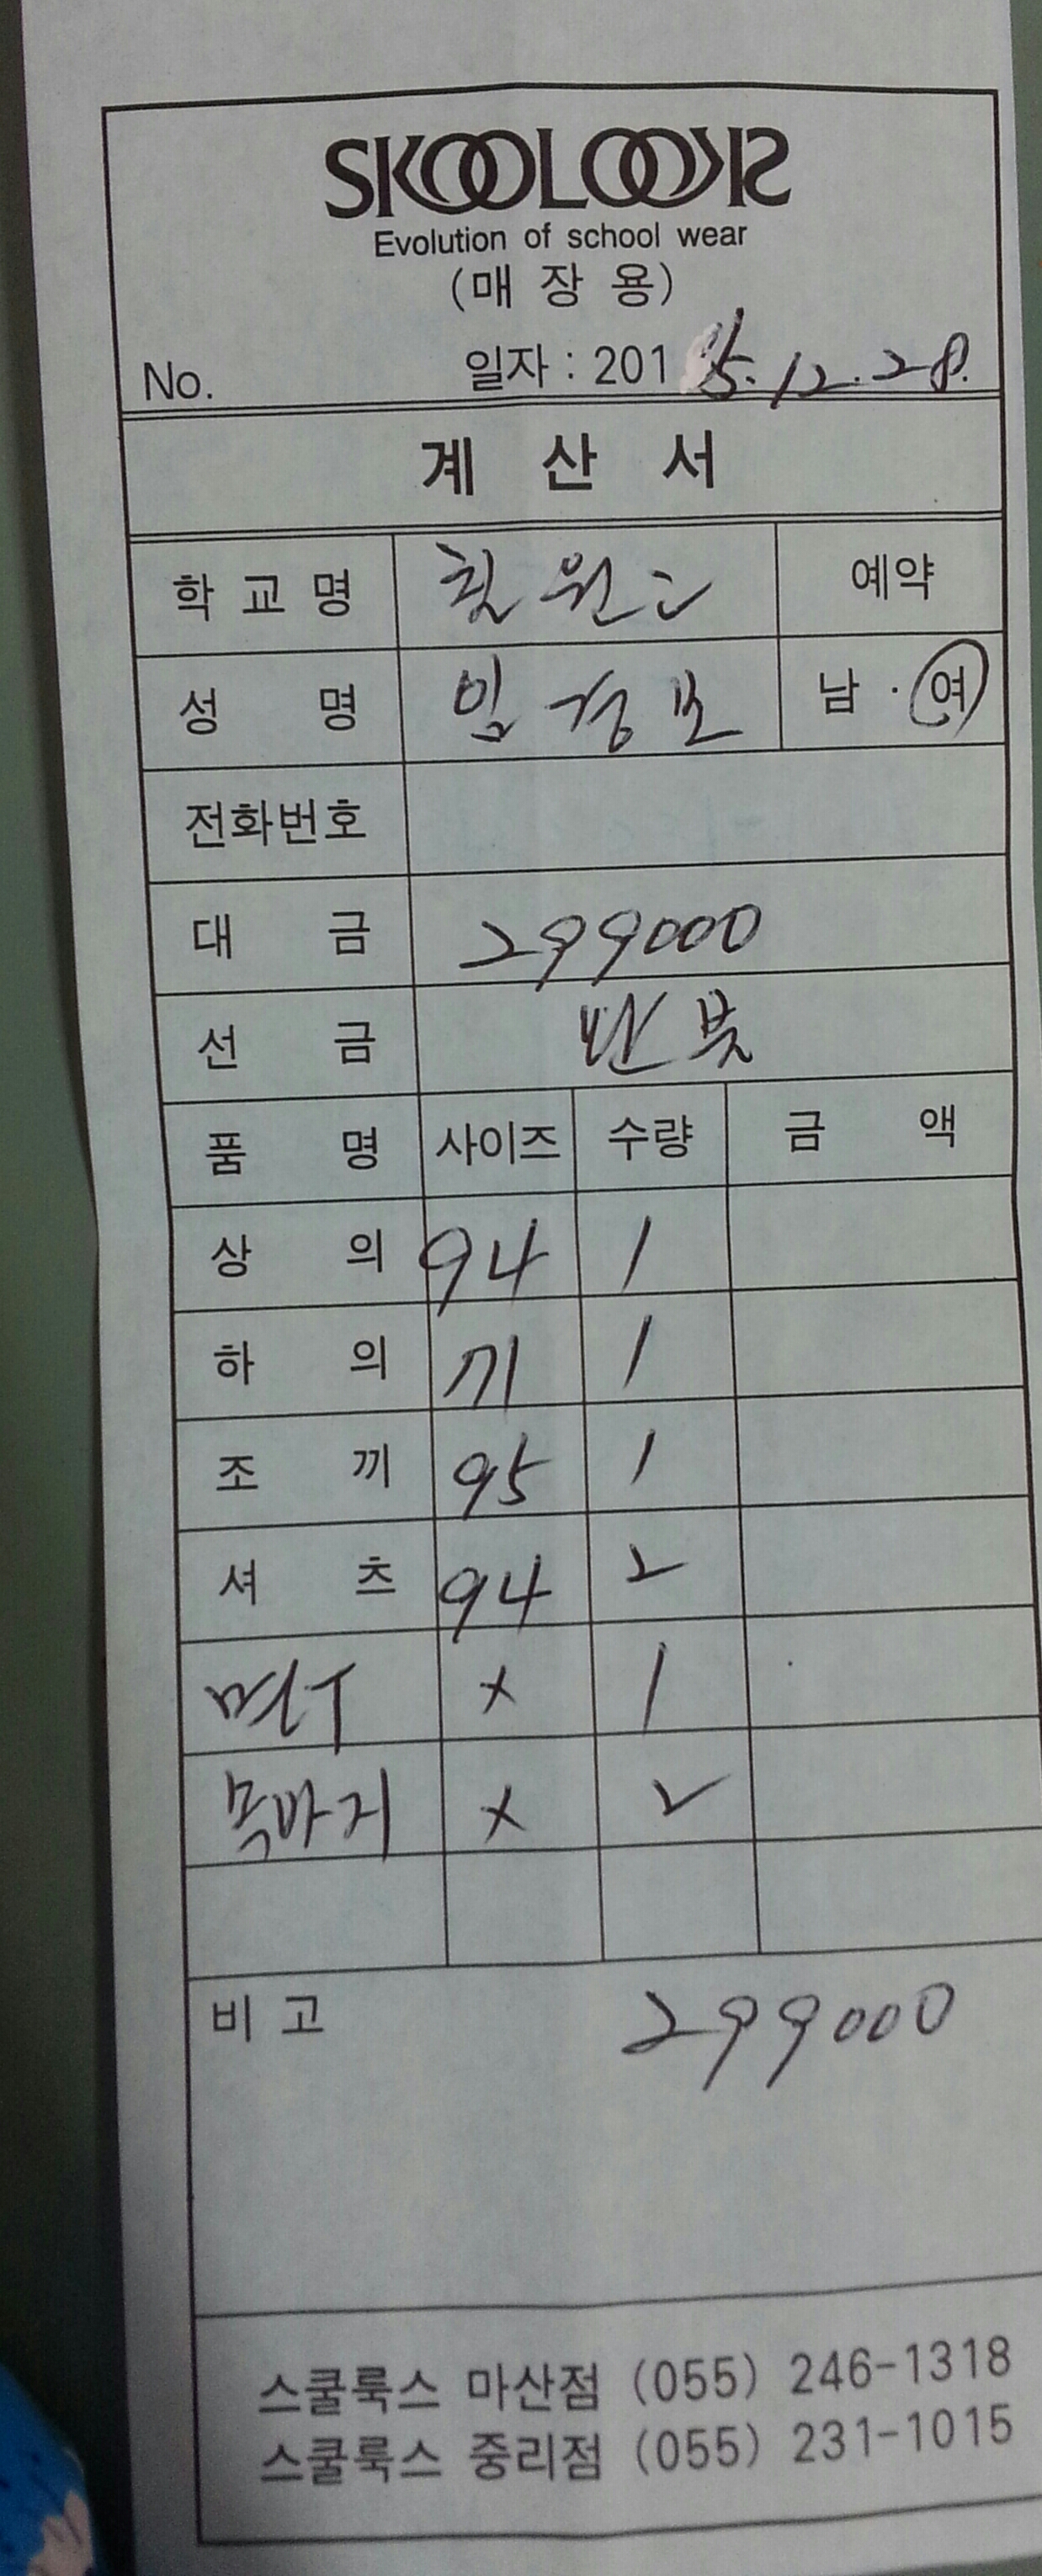 SKOOLOOKS
Evolution of school wear
(매 장 용)
No. 일자 : 2015.12.28.
계 산 서
학 교 명 칠원고 예약
성 명 임경보 남 · 여
전화번호
대 금 299000
선 금
품 명 사이즈 수량 금 액
상 의 94 1
하 의 71 1
조 끼 95 1
셔 츠 94 2
면T × 1
목바지 × 2
비 고 299000
스쿨룩스 마산점 (055) 246-1318
스쿨룩스 중리점 (055) 231-1015